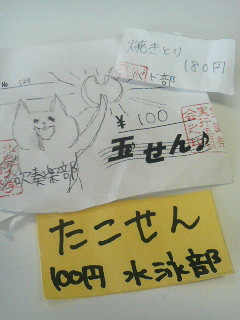 焼きとり
ド部
(80円)
No 129
¥100
玉せん♪
吹奏楽部
たこせん
100円 水泳部